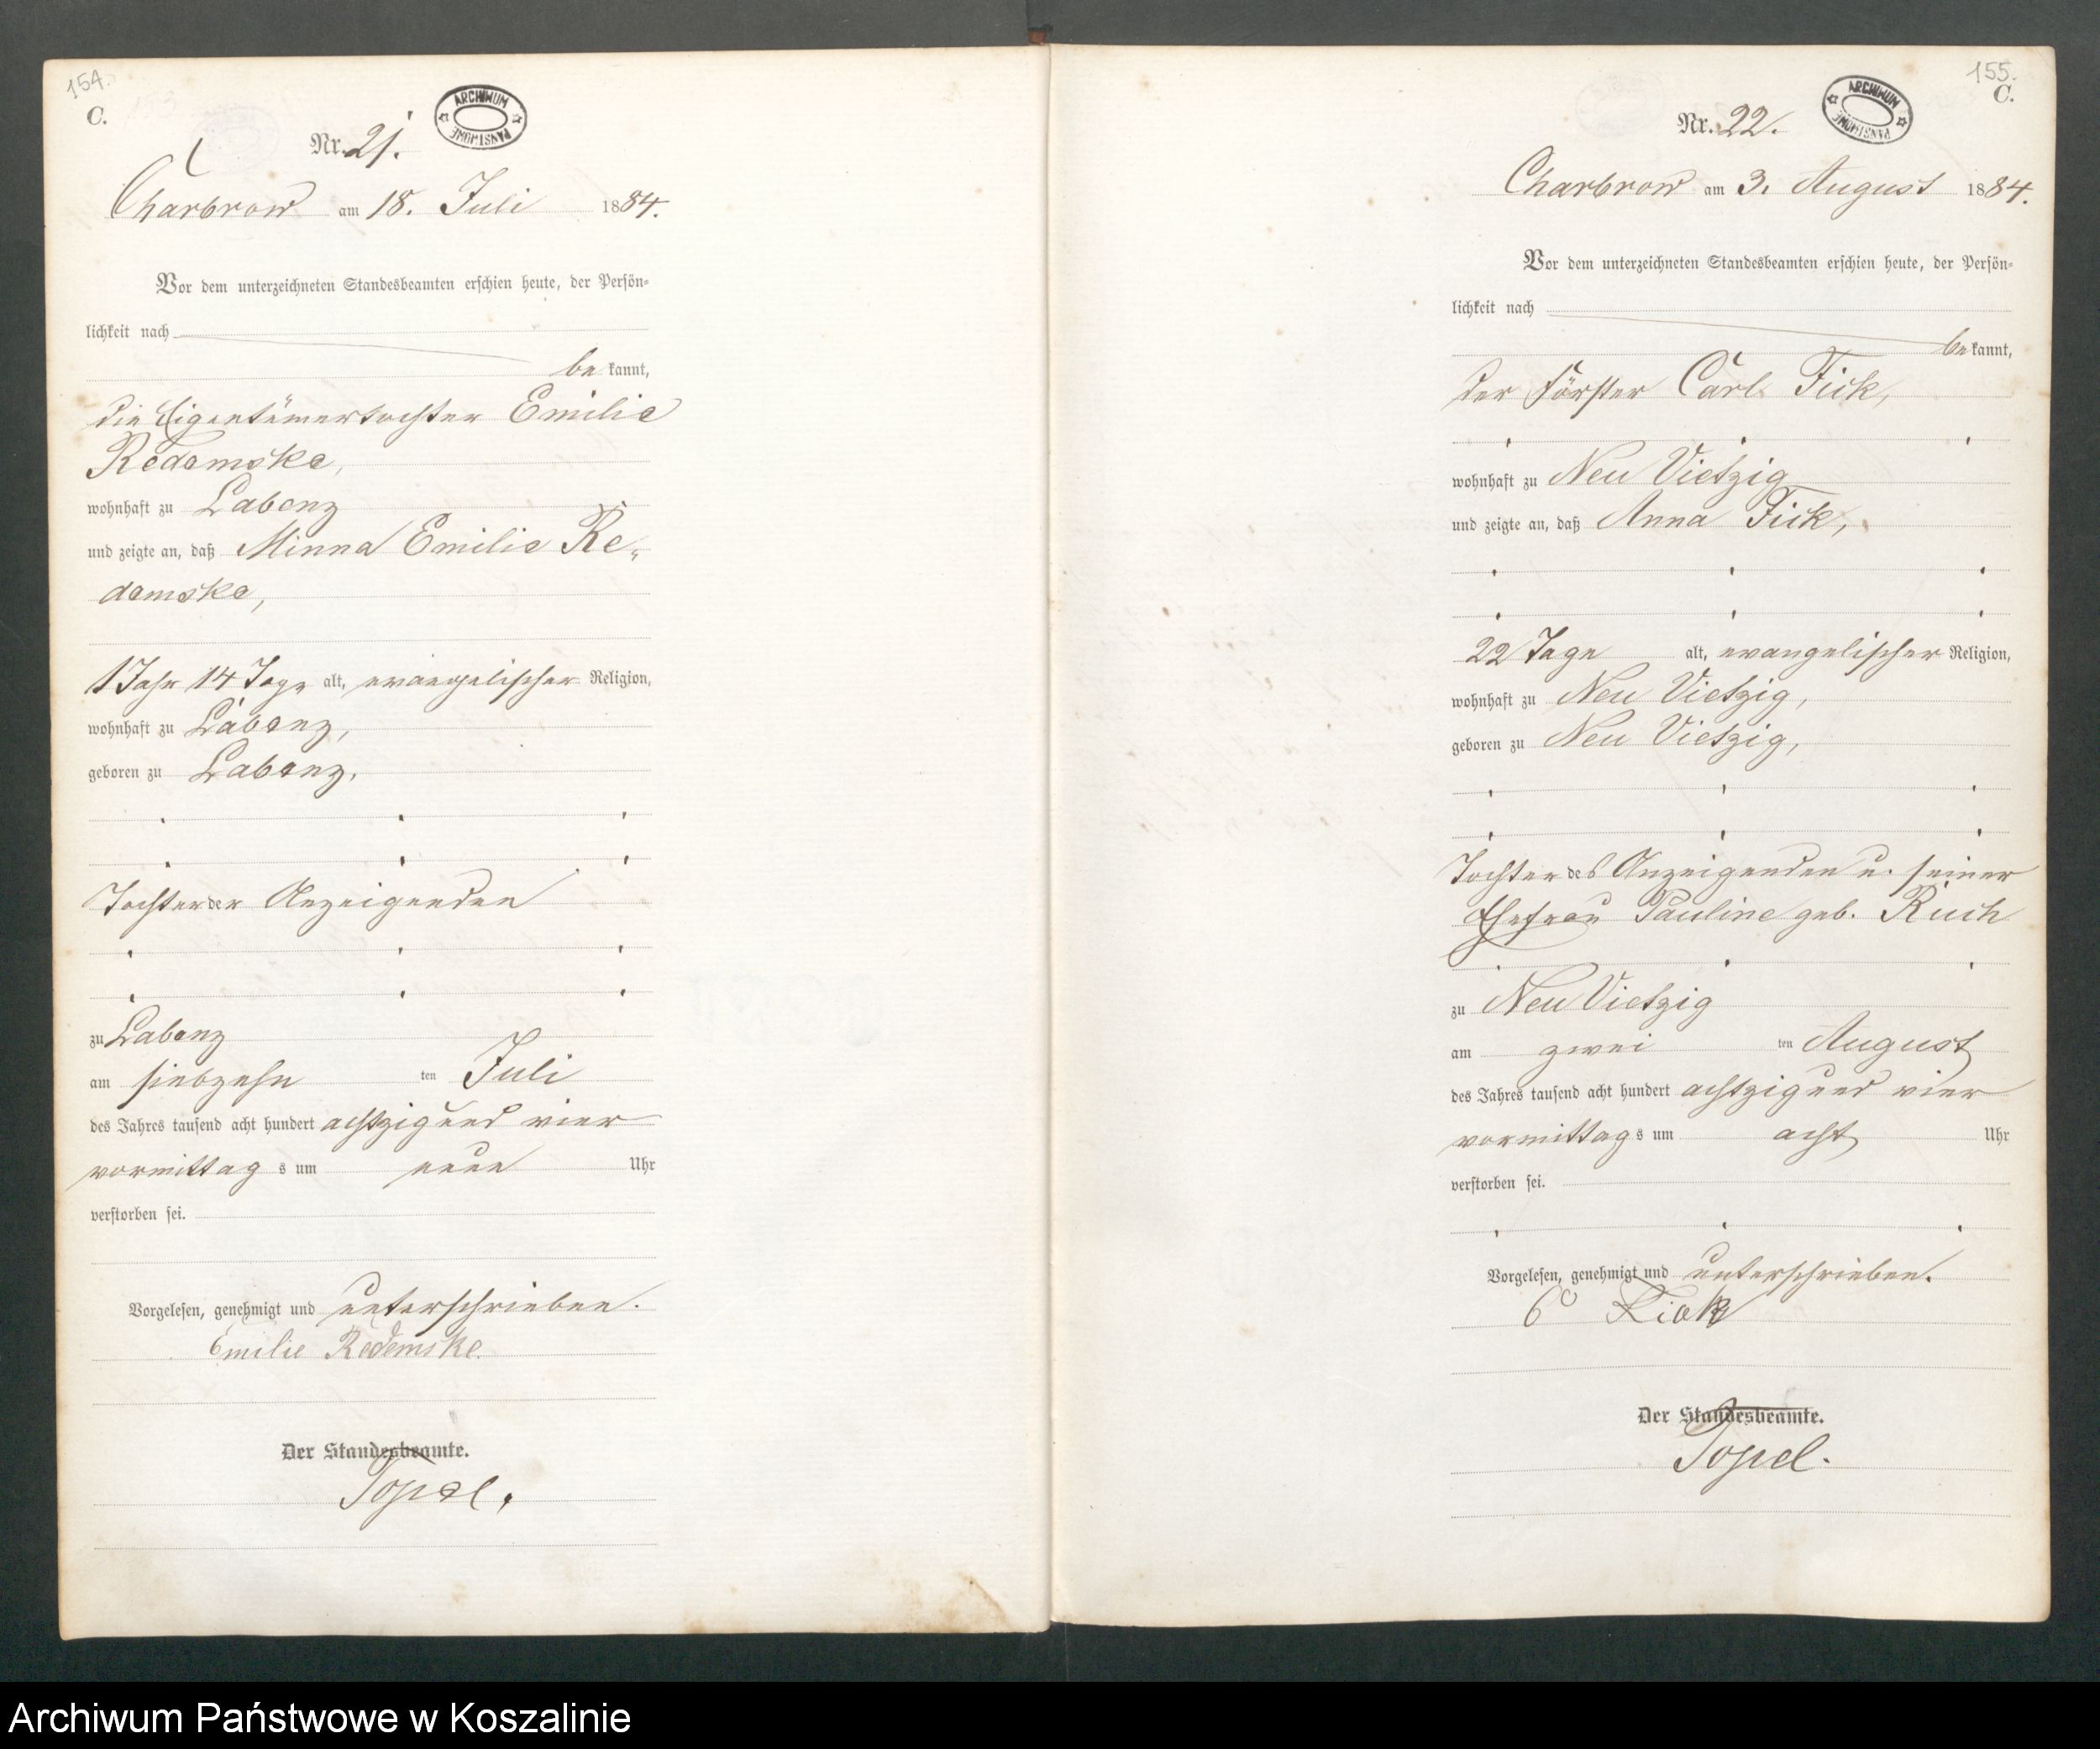 154.
C.
ARCHIWUM PAŃSTWOWE
Nr. 21.
Charbrow am 18. Juli 1884.
Vor dem unterzeichneten Standesbeamten erschien heute, der Persön-
lichkeit nach
be kannt,
die Eigentümertochter Emilie
Redemske,
wohnhaft zu Labenz
und zeigte an, daß Minna Emilie Re-
demske,
1 Jahr 14 Tage alt, evangelischer Religion,
wohnhaft zu Labenz,
geboren zu Labenz,
Tochter der Anzeigenden
zu Labenz
am siebzehn ten Juli
des Jahres tausend acht hundert achtzig und vier
vormittag s um neun Uhr
verstorben sei.
Vorgelesen, genehmigt und unterschrieben.
Emilie Redemske.
Der Standesbeamte.
Topel.
155.
C.
ARCHIWUM PAŃSTWOWE
Nr. 22.
Charbrow am 3. August 1884.
Vor dem unterzeichneten Standesbeamten erschien heute, der Persön-
lichkeit nach
be kannt,
der Förster Carl Fick,
wohnhaft zu Neu Vietzig
und zeigte an, daß Anna Fick,
22 Tage alt, evangelischer Religion,
wohnhaft zu Neu Vietzig,
geboren zu Neu Vietzig,
Tochter des Anzeigenden u. seiner
Ehefrau Pauline geb. Ruch
zu Neu Vietzig
am zwei ten August
des Jahres tausend acht hundert achtzig und vier
vormittag s um acht Uhr
verstorben sei.
Vorgelesen, genehmigt und unterschrieben.
C Fick
Der Standesbeamte.
Topel.
Archiwum Państwowe w Koszalinie